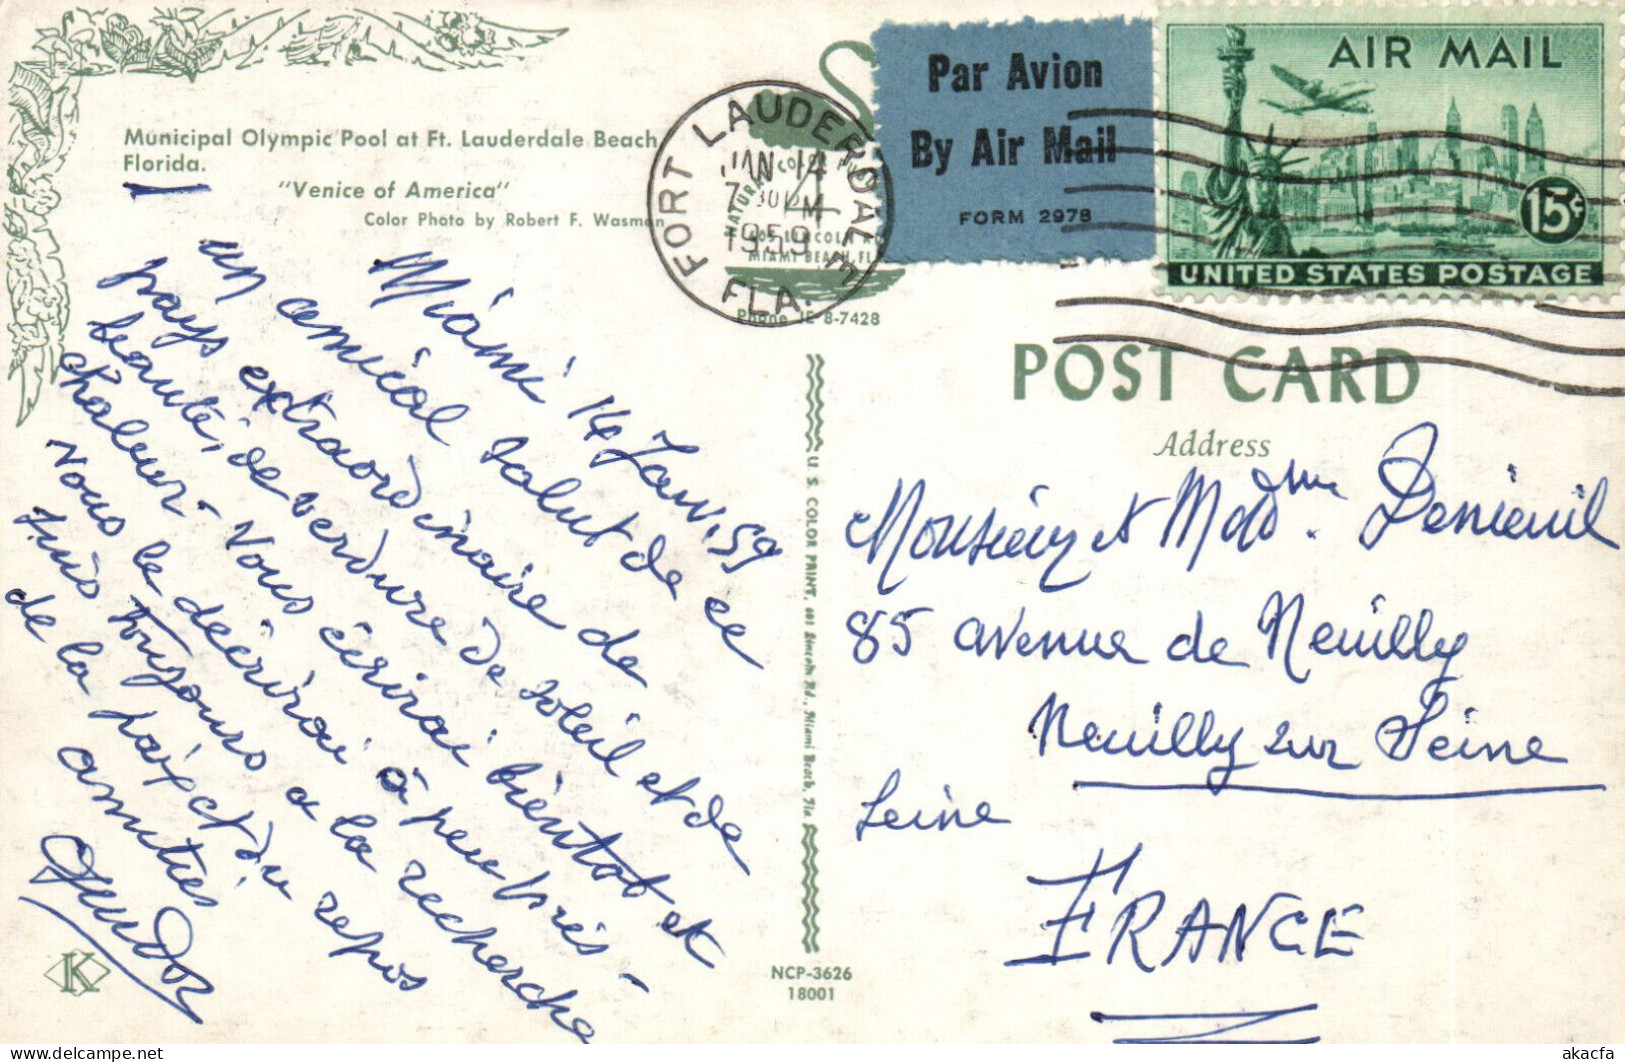 Municipal Olympic Pool at Ft. Lauderdale Beach
Florida.
"Venice of America"
Color Photo by Robert F. Wasman
Miami 14 Janv. 59
un amical salut de ce
pays extraordinaire de
beauté, de verdure de soleil et de
chaleur - Vous écrirai bientot et
vous le décrirai à peu près -
suis toujours a la recherche
de la paix et du repos
amitiés
K
FORT LAUDERDALE
JAN 14
7 30 PM
1959
FLA.
NATURAL COLOR
605 LINCOLN RD
MIAMI BEACH, FLA
Phone JE 8-7428
U. S. COLOR PRINT, 605 Lincoln Rd., Miami Beach, Fla
NCP-3626
18001
Par Avion
By Air Mail
FORM 2978
AIR MAIL
15¢
UNITED STATES POSTAGE
POST CARD
Address
Monsieur et Madme
85 avenue de Neuilly
Neuilly sur Seine
Seine
FRANCE
akacfa